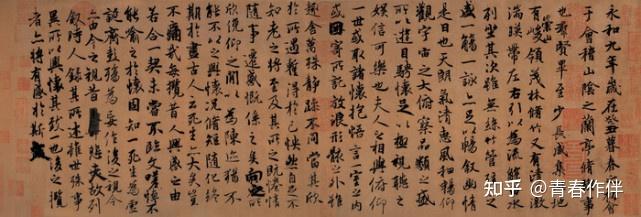 永和九年歲在癸丑暮春之初會
于會稽山陰之蘭亭脩稧事
也群賢畢至少長咸集此地
有崇山峻領茂林脩竹又有清流激
湍暎帶左右引以為流觴曲水
列坐其次雖無絲竹管弦之
盛一觴一詠亦足以暢敘幽情
是日也天朗氣清惠風和暢仰
觀宇宙之大俯察品類之盛
所以遊目騁懷足以極視聽之
娛信可樂也夫人之相與俯仰
一世或取諸懷抱悟言一室之內
或因寄所託放浪形骸之外雖
趣舍萬殊靜躁不同當其欣
於所遇蹔得於己怏然自足不
知老之將至及其所之既惓情
隨事遷感慨係之矣向之所
欣俛仰之間以為陳迹猶不
能不以之興懷況脩短隨化終
期於盡古人云死生亦大矣豈
不痛哉每攬昔人興感之由
若合一契未嘗不臨文嗟悼不
能喻之於懷固知一死生為虛
誕齊彭殤為妄作後之視今
亦由今之視昔悲夫故列
敘時人錄其所述雖世殊事
異所以興懷其致一也後之攬
者亦將有感於斯文
知乎 @青春作伴